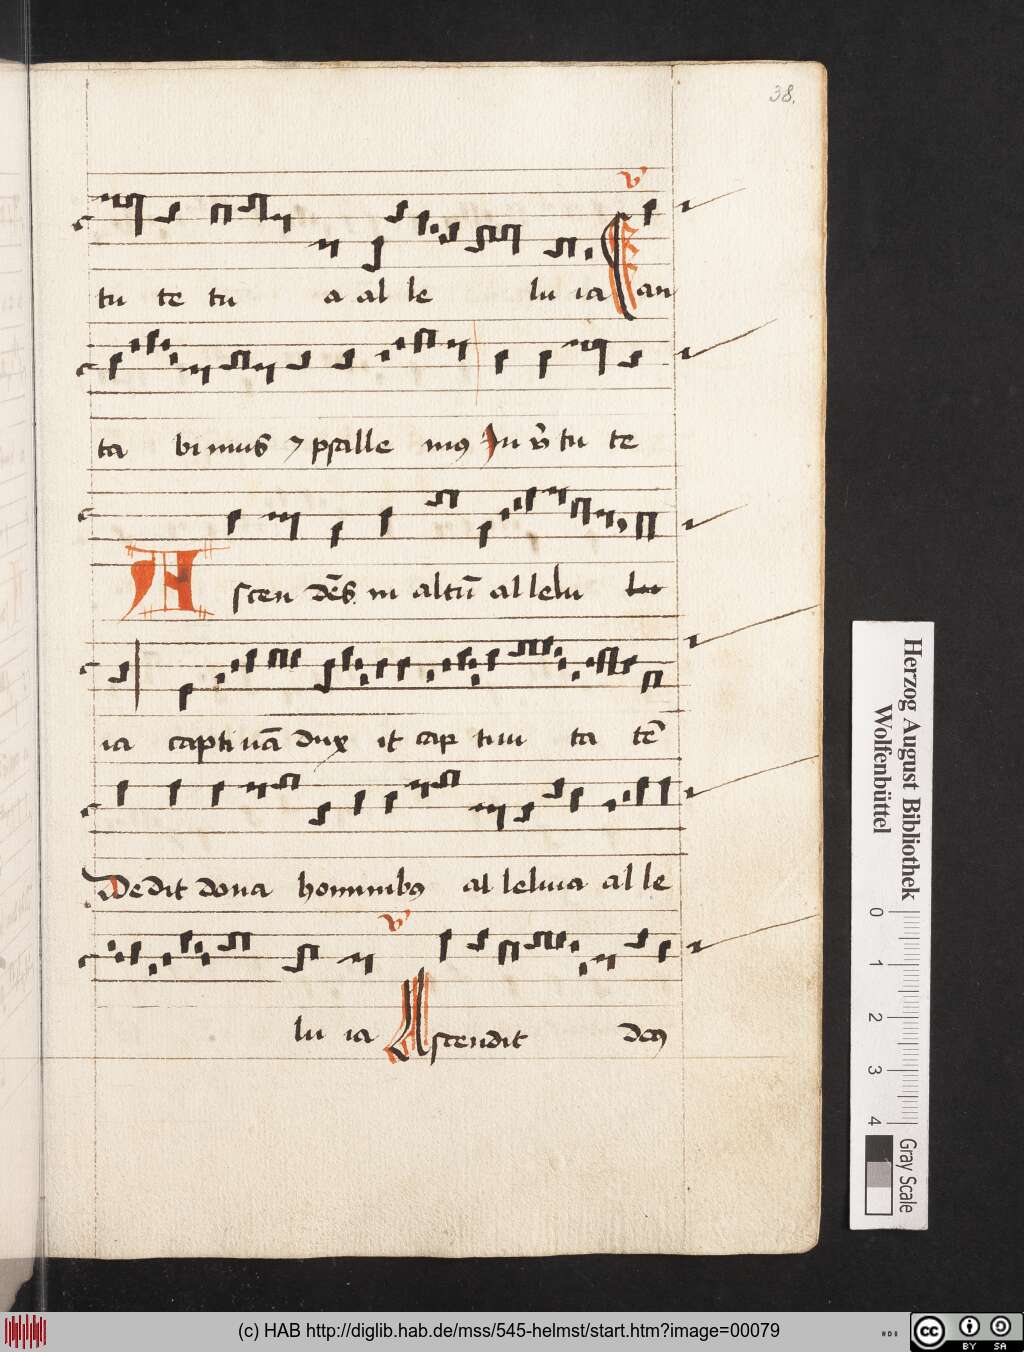 38.
v
tu te tu a al le lu ia Can
ta bi mus ⁊ psalle mꝰ In v̄ tu te
Ascen dēs in altū allelu
ia captiuā dux it cap tiui ta tē
Dedit dona hominibꝰ al leluia al le
v
lu ia Ascendit deꝰ
Herzog August Bibliothek
Wolfenbüttel
0 1 2 3 4
Gray Scale
(c) HAB http://diglib.hab.de/mss/545-helmst/start.htm?image=00079
cc BY SA